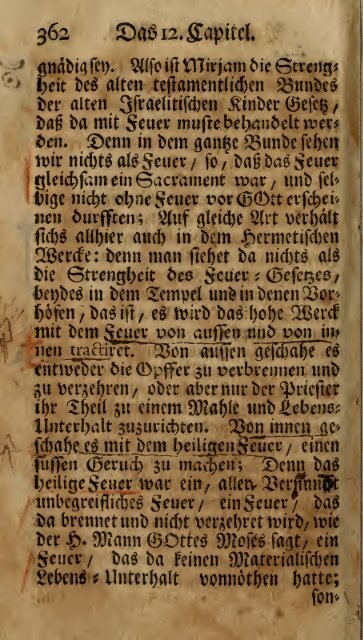 362 Das 12. Capitel.
gnädig sey. Also ist Mirjam die Streng-
heit des alten testamentlichen Bundes
der alten Israelitischen Kinder Gesetz,
daß da mit Feuer muste behandelt wer-
den. Denn in dem gantze Bunde sehen
wir nichts als Feuer, so, daß das Feuer
gleichsam ein Sacrament war, und sel-
bige nicht ohne Feuer vor GOtt erschei-
nen durfften; Auf gleiche Art verhält
sichs allhier auch in dem Hermetischen
Wercke: denn man siehet da nichts als
die Strengheit des Feuer-Gesetzes,
beydes in dem Tempel und in denen Vor-
höfen, das ist, es wird das hohe Werck
mit dem Feuer von aussen und von in-
nen tractiret. Von aussen geschahe es
entweder die Opffer zu verbrennen und
zu verzehren, oder aber nur der Priester
ihr Theil zu einem Mahle und Lebens-
Unterhalt zuzurichten. Von innen ge-
schahe es mit dem heiligen Feuer, einen
süssen Geruch zu machen; Denn das
heilige Feuer war ein, allen Vernunfft
unbegreifliches Feuer, ein Feuer, das
da brennet und nicht verzehret wird, wie
der H. Mann GOttes Moses sagt, ein
Feuer, das da keinen Materialischen
Lebens-Unterhalt vonnöthen hatte;
son-